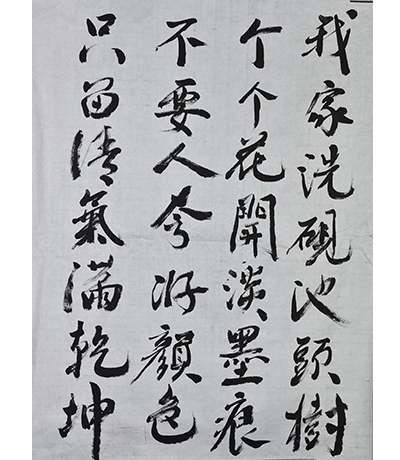 我家洗硯池頭樹
个个花開淡墨痕
不要人夸好顔色
只留清氣滿乾坤